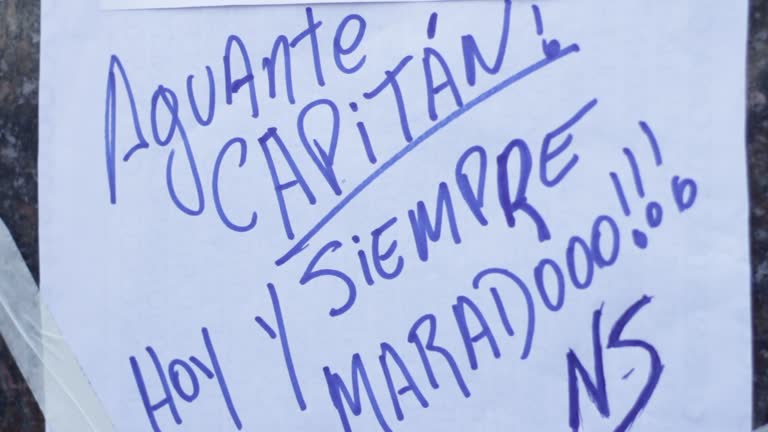 AGUANTE
CAPITÁN!
HOY Y SIEMPRE
MARADOOO!!!
N.S